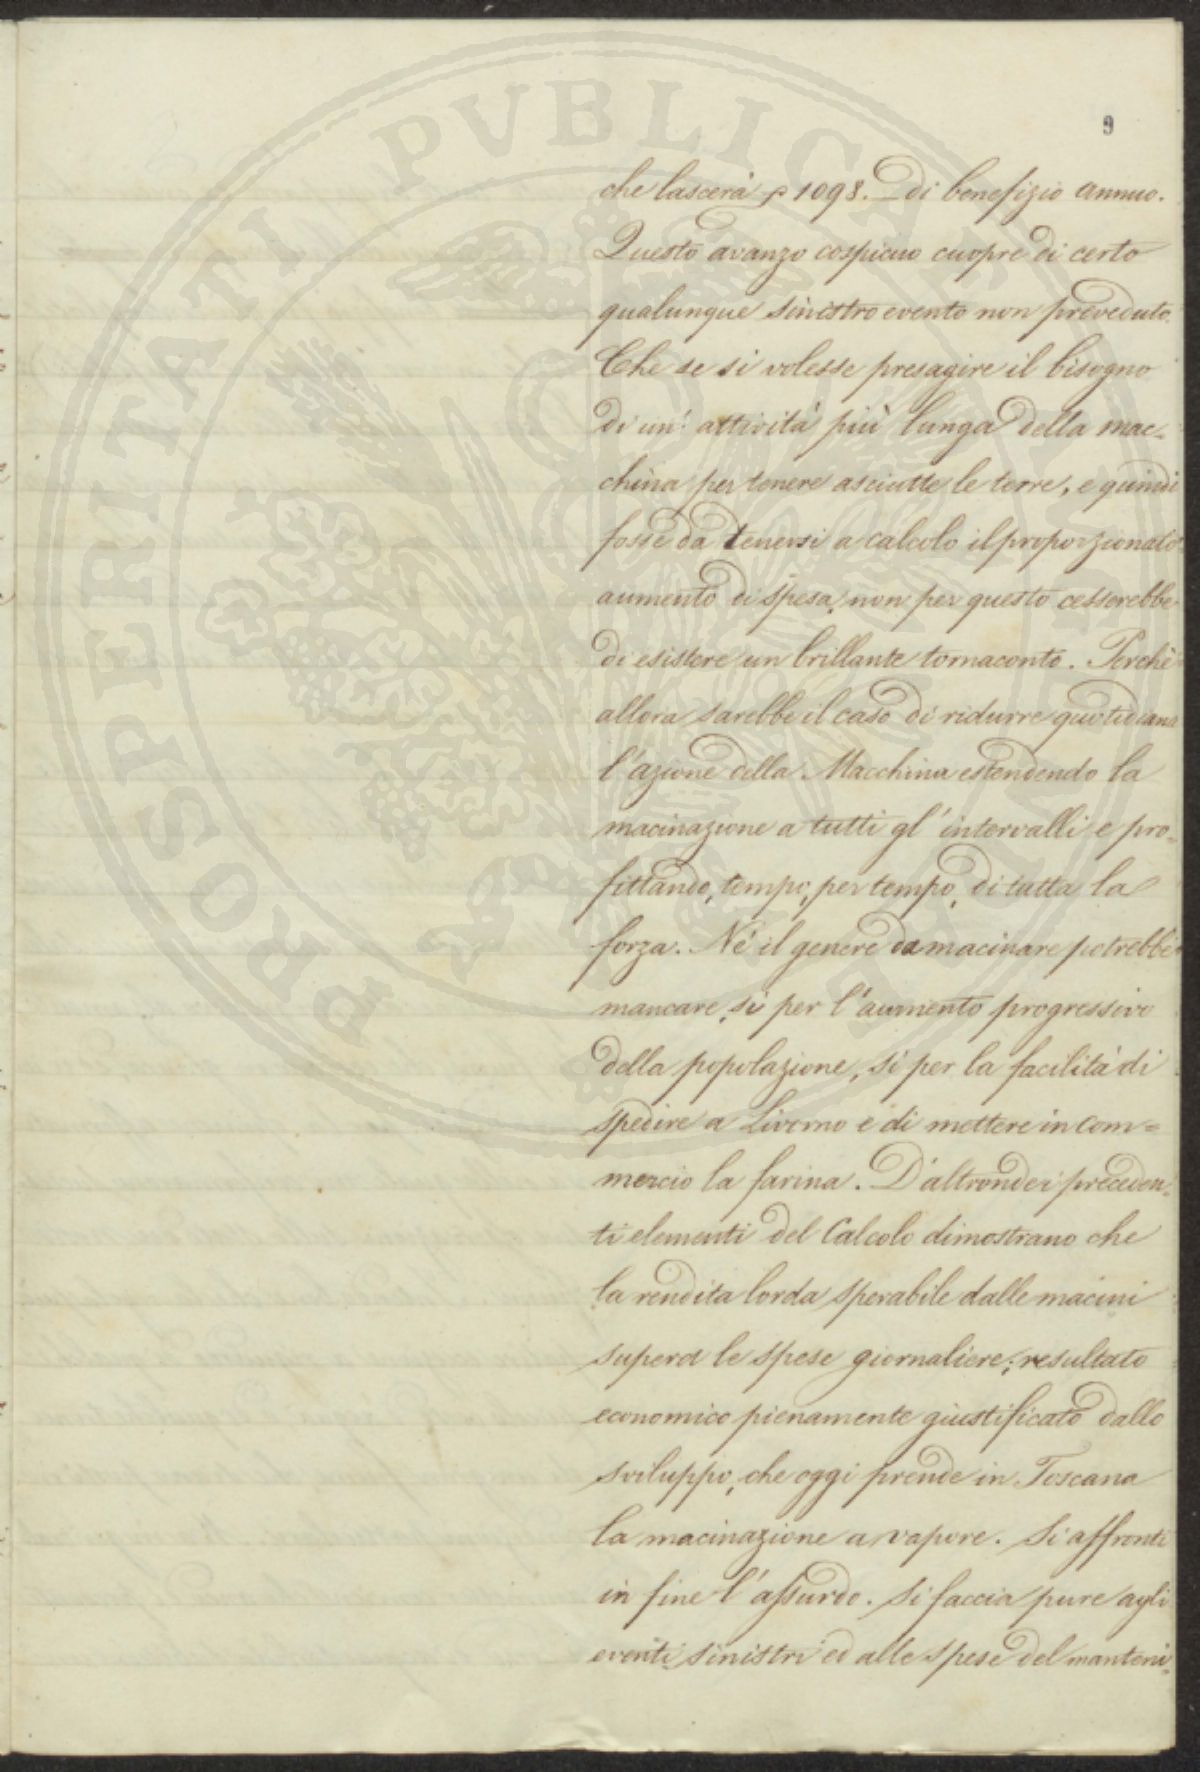 9
che lascerà p 1098. _ di benefizio annuo.
Questo avanzo cospicuo cuopre di certo
qualunque sinistro evento non preveduto.
Che se si volesse presagire il bisogno
di un' attività più lunga della mac-
china per tenere asciutte le terre, e quindi
fosse da tenersi a calcolo il proporzionato
aumento di spesa, non per questo cesserebbe
di esistere un brillante tornaconto. Perchè
allora sarebbe il caso di ridurre quotidiana
l'azione della Macchina estendendo la
macinazione a tutti gl'intervalli e pro-
fittando, tempo, per tempo, di tutta la
forza. Nè il genere da macinare potrebbe
mancare, sì per l'aumento progressivo
della popolazione, sì per la facilità di
spedire a Livorno e di mettere in com=
mercio la farina. D'altronde i preceden-
ti elementi del Calcolo dimostrano che
la rendita lorda sperabile dalle macini
supera le spese giornaliere; resultato
economico pienamente giustificato dallo
sviluppo, che oggi prende in Toscana
la macinazione a vapore. Si affronti
in fine l'assurdo. Si faccia pure agli
eventi sinistri ed alle spese del manteni-
PROSPERITATI PVBLICAE